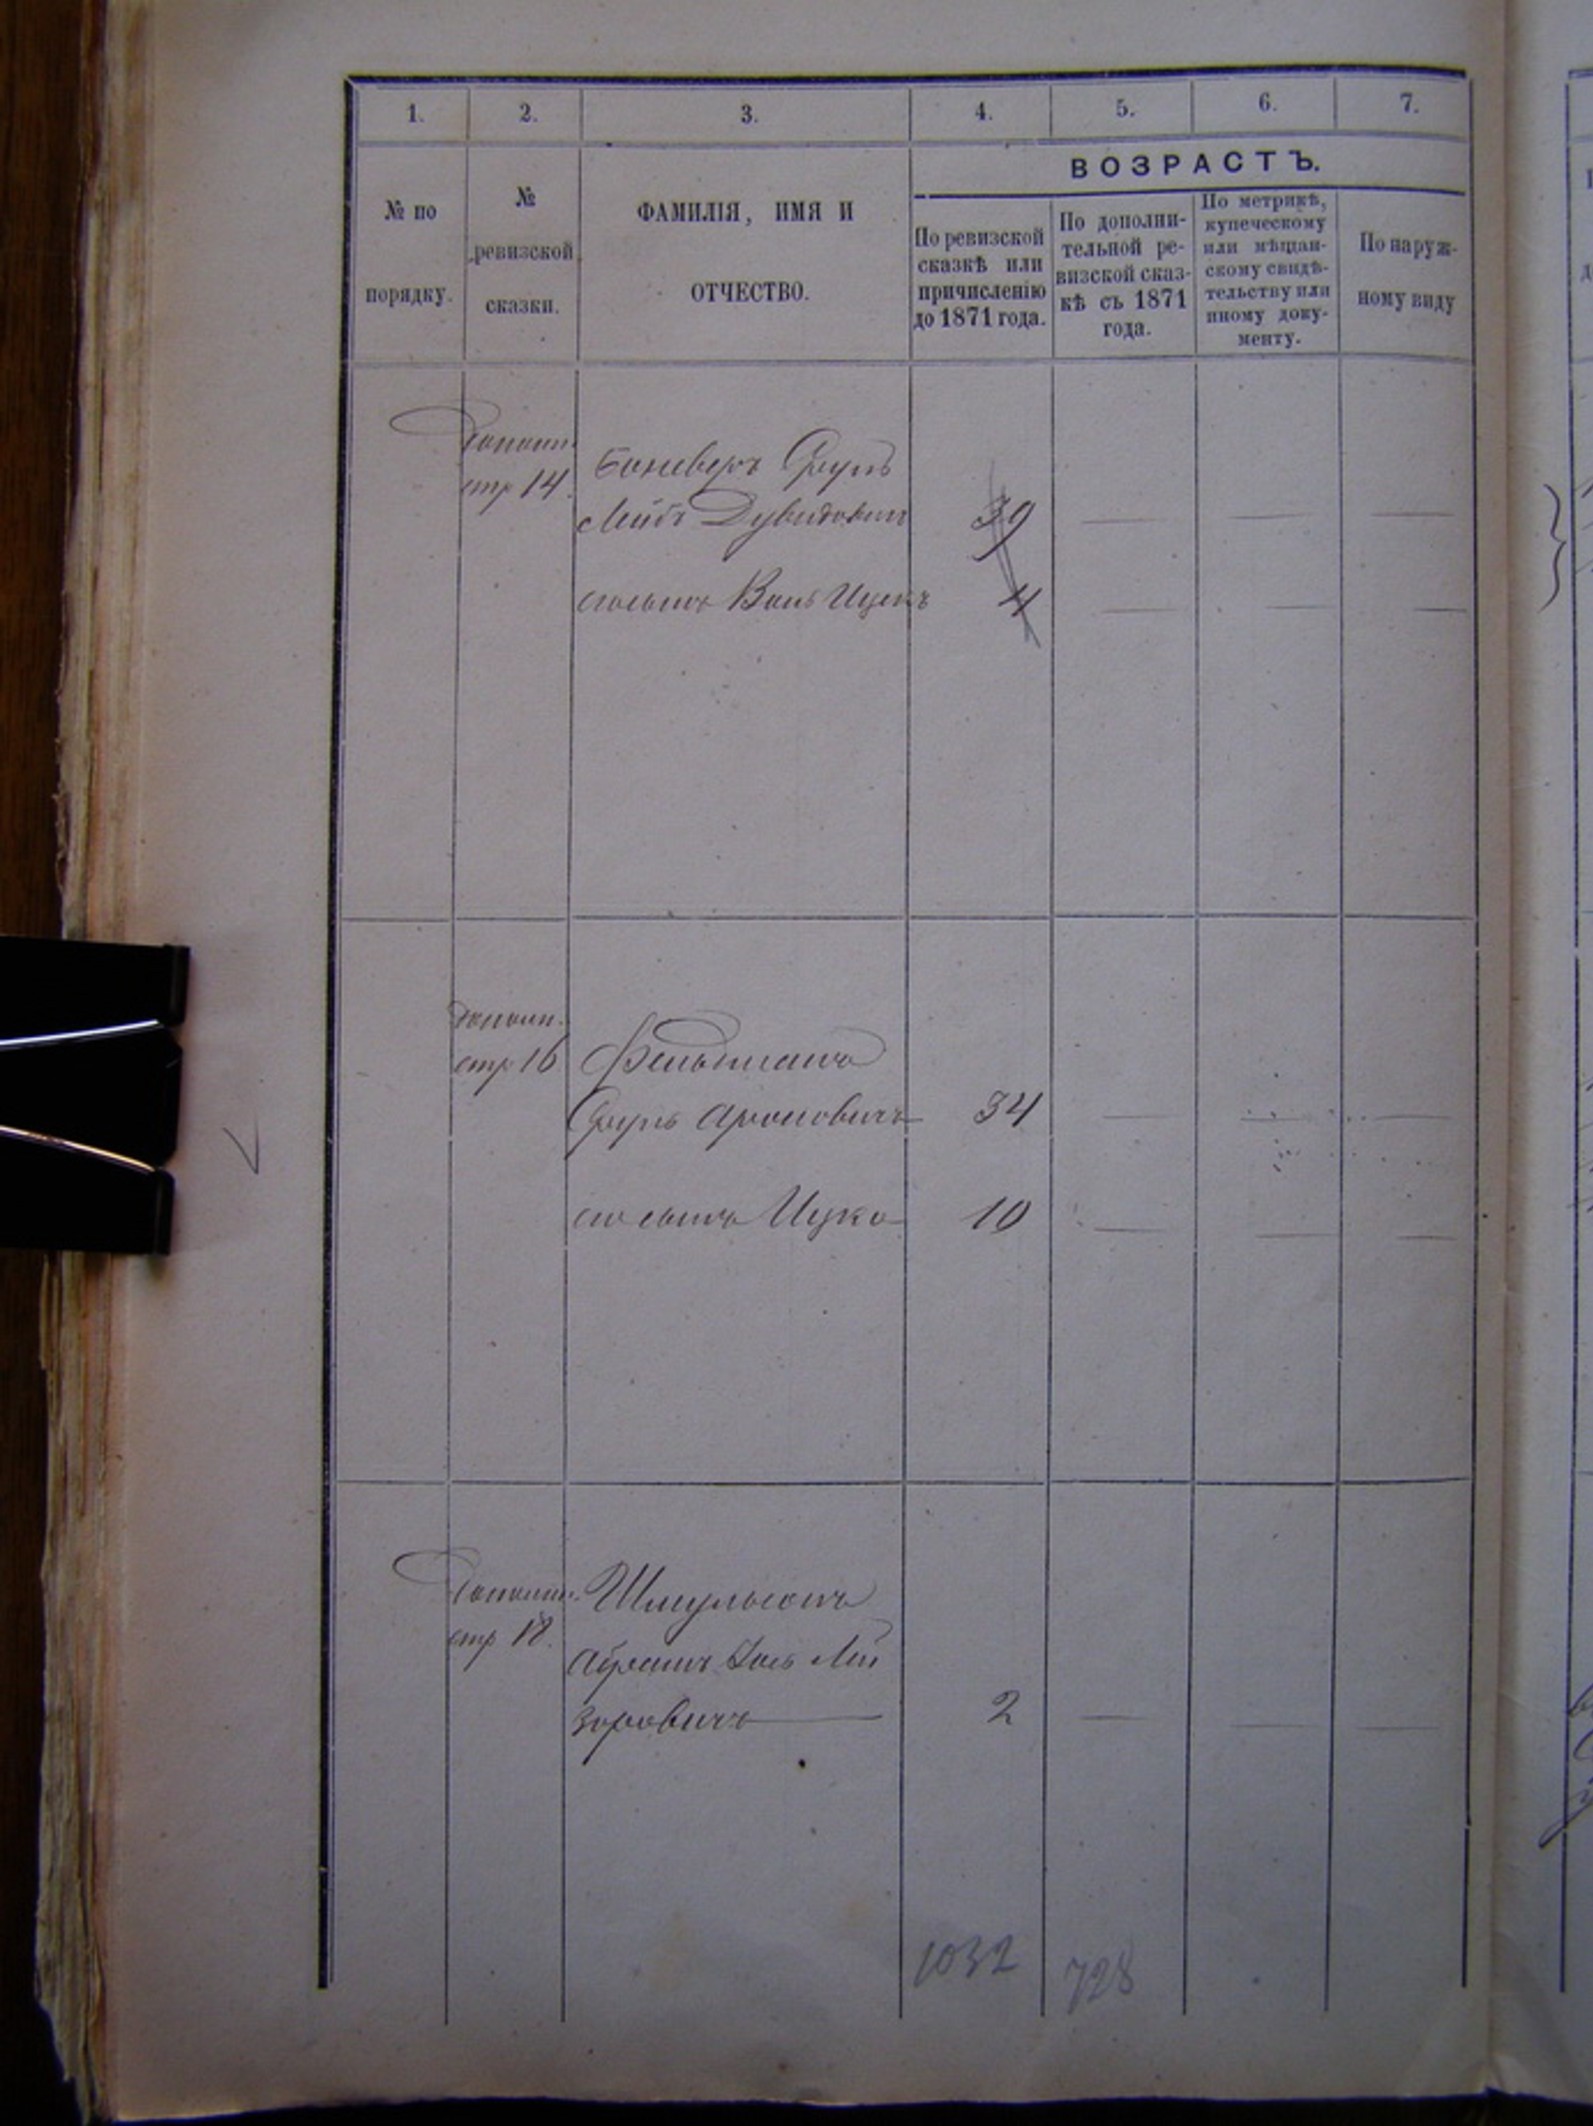 1. 2. 3. 4. 5. 6. 7.
№ по
порядку.
№
ревизской
сказки.
ФАМИЛІЯ, ИМЯ И
ОТЧЕСТВО.
ВОЗРАСТЪ.
По ревизской
сказкѣ или
причисленію
до 1871 года.
По дополни-
тельной ре-
визской сказ-
кѣ съ 1871
года.
По метрикѣ,
купеческому
или мѣщан-
скому свидѣ-
тельству или
иному доку-
менту.
По наруж-
ному виду
Дополн.
стр 14.
Сруль
Лейбъ Дувидовичъ 39
сынъ Ицекъ 4
дополн.
стр 16
Фельдманъ
Сруль Ароновичъ 34
сынъ Ицко 10
Дополн.
стр 18.
Шмульсонъ
Абрамъ Лей
зоровичъ 2
1032 728